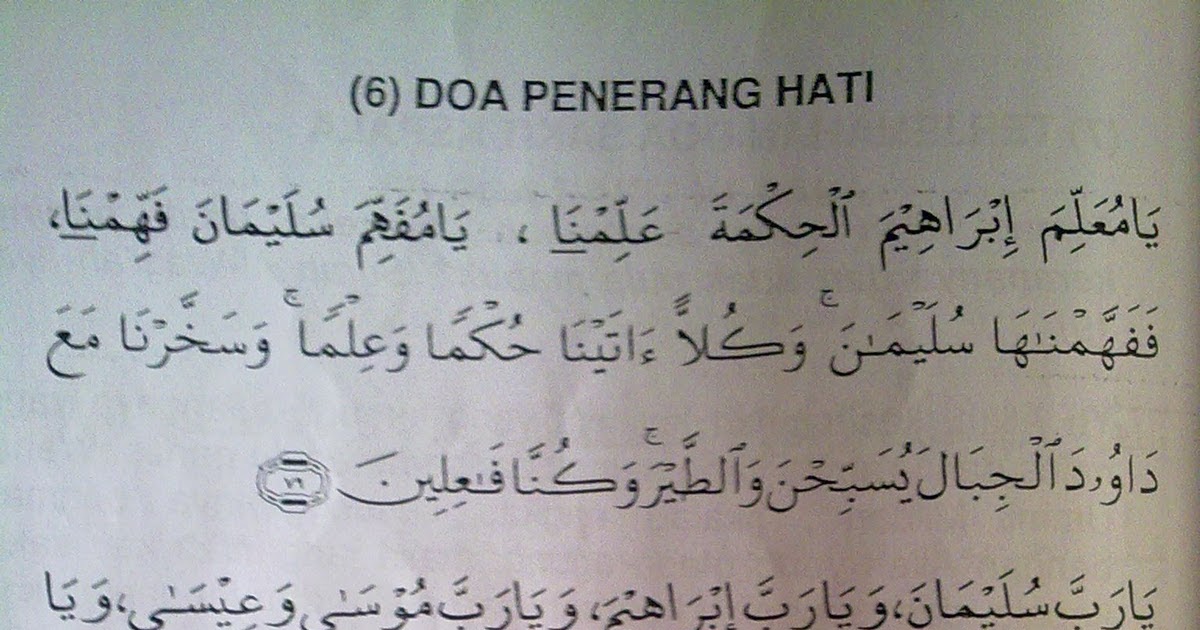 (6) DOA PENERANG HATI
يَامُعَلِّمَ إِبْرَاهِيْمَ ٱلْحِكْمَةَ عَلِّمْنَا ، يَامُفَهِّمَ سُلَيْمَانَ فَهِّمْنَا،
فَفَهَّمْنَـٰهَا سُلَيْمَـٰنَ ۚ وَكُلاًّ ءَاتَيْنَا حُكْمًا وَعِلْمًا ۚ وَسَخَّرْنَا مَعَ
دَاوُۥدَ ٱلْجِبَالَ يُسَبِّحْنَ وَٱلطَّيْرَ ۚ وَكُنَّا فَـٰعِلِينَ ٧٩
يَارَبَّ سُلَيْمَانَ، وَيَارَبَّ إِبْرَاهِيْمَ، وَيَارَبَّ مُوْسَىٰ وَعِيْسَىٰ، وَيَا